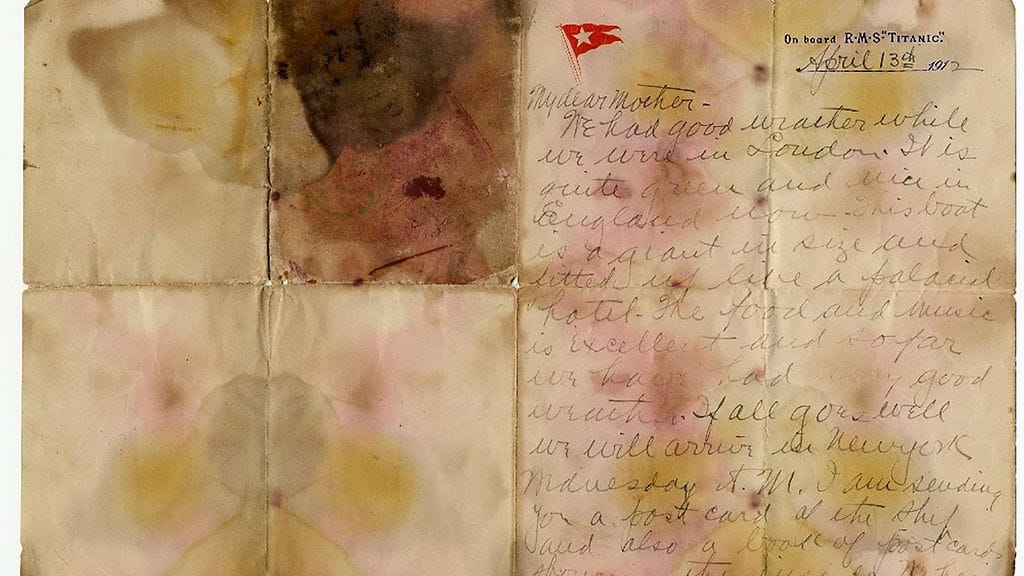 On board R·M·S "TITANIC".
April 13th 1912
My dear Mother-
We had good weather while
we were in London. It is
quite green and nice in
England now. This boat
is a giant in size and
fitted up like a palacial
hotel. The food and music
is excellent and so far
we have had very good
weather. If all goes well
we will arrive in New york
Wednesday A.M. I am sending
you a post card of the ship
and also a book of postcards
the